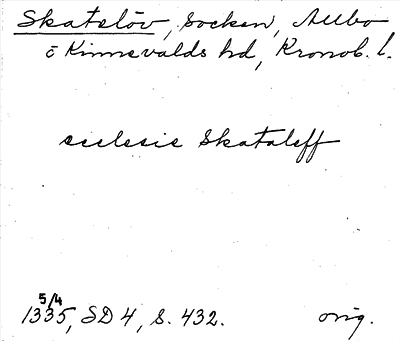 Skatelöv, Socken, Allbo
o Kinnevalds hd, Kronob. l.
ecclesie Skataleff
5/4
1335, SD 4, S. 432. orig.